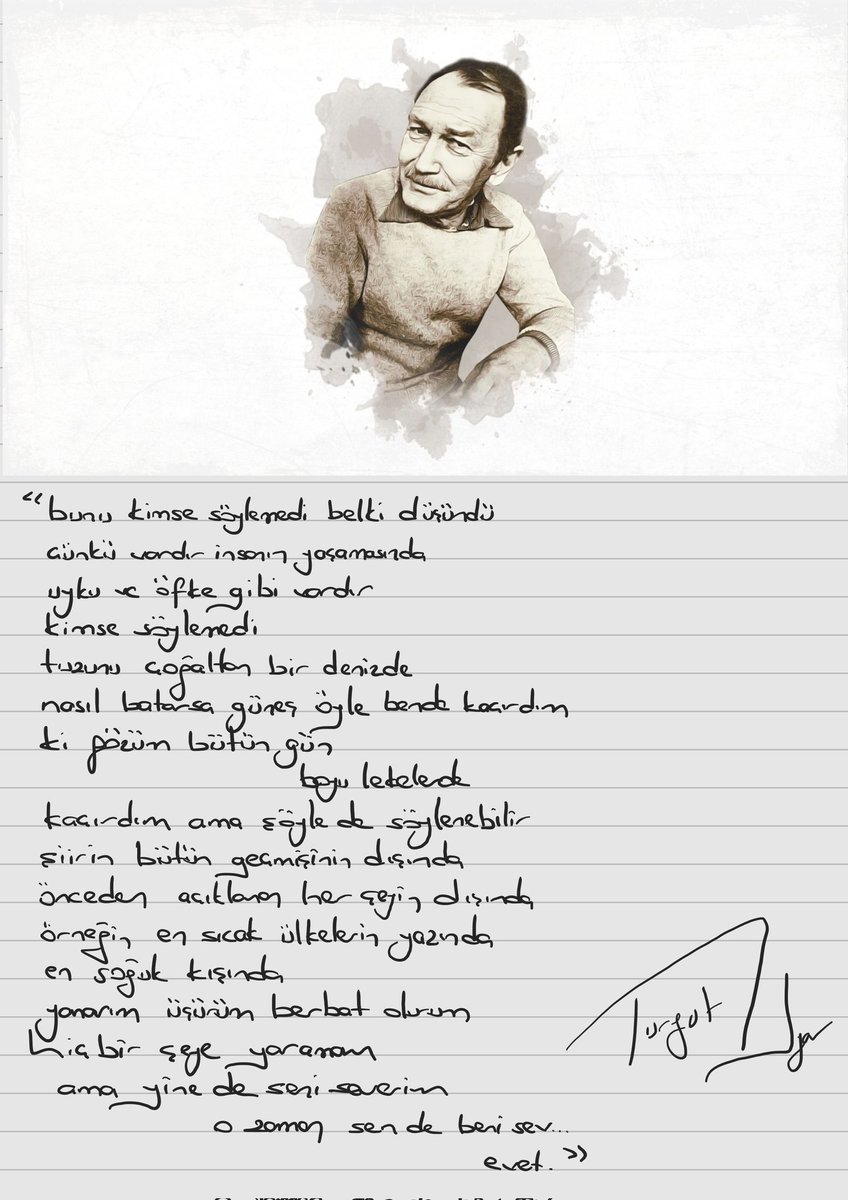 “bunu kimse söylemedi belki düşündü
çünkü vardır insanın yaşamasında
uyku ve öfke gibi vardır
kimse söylemedi
tuzunu çoğaltan bir denizde
nasıl batarsa güneş öyle bende kaçırdım
ki gözüm bütün gün
boyu lekelerde
kaçırdım ama şöyle de söylenebilir
şiirin bütün geçmişinin dışında
önceden açıklanan her şeyin dışında
örneğin en sıcak ülkelerin yazında
en soğuk kışında
yanarım üşürüm berbat olurum
hiç bir şeye yaramam
ama yine de seni severim
o zaman sen de beni sev...
evet.”
Turgut Uyar